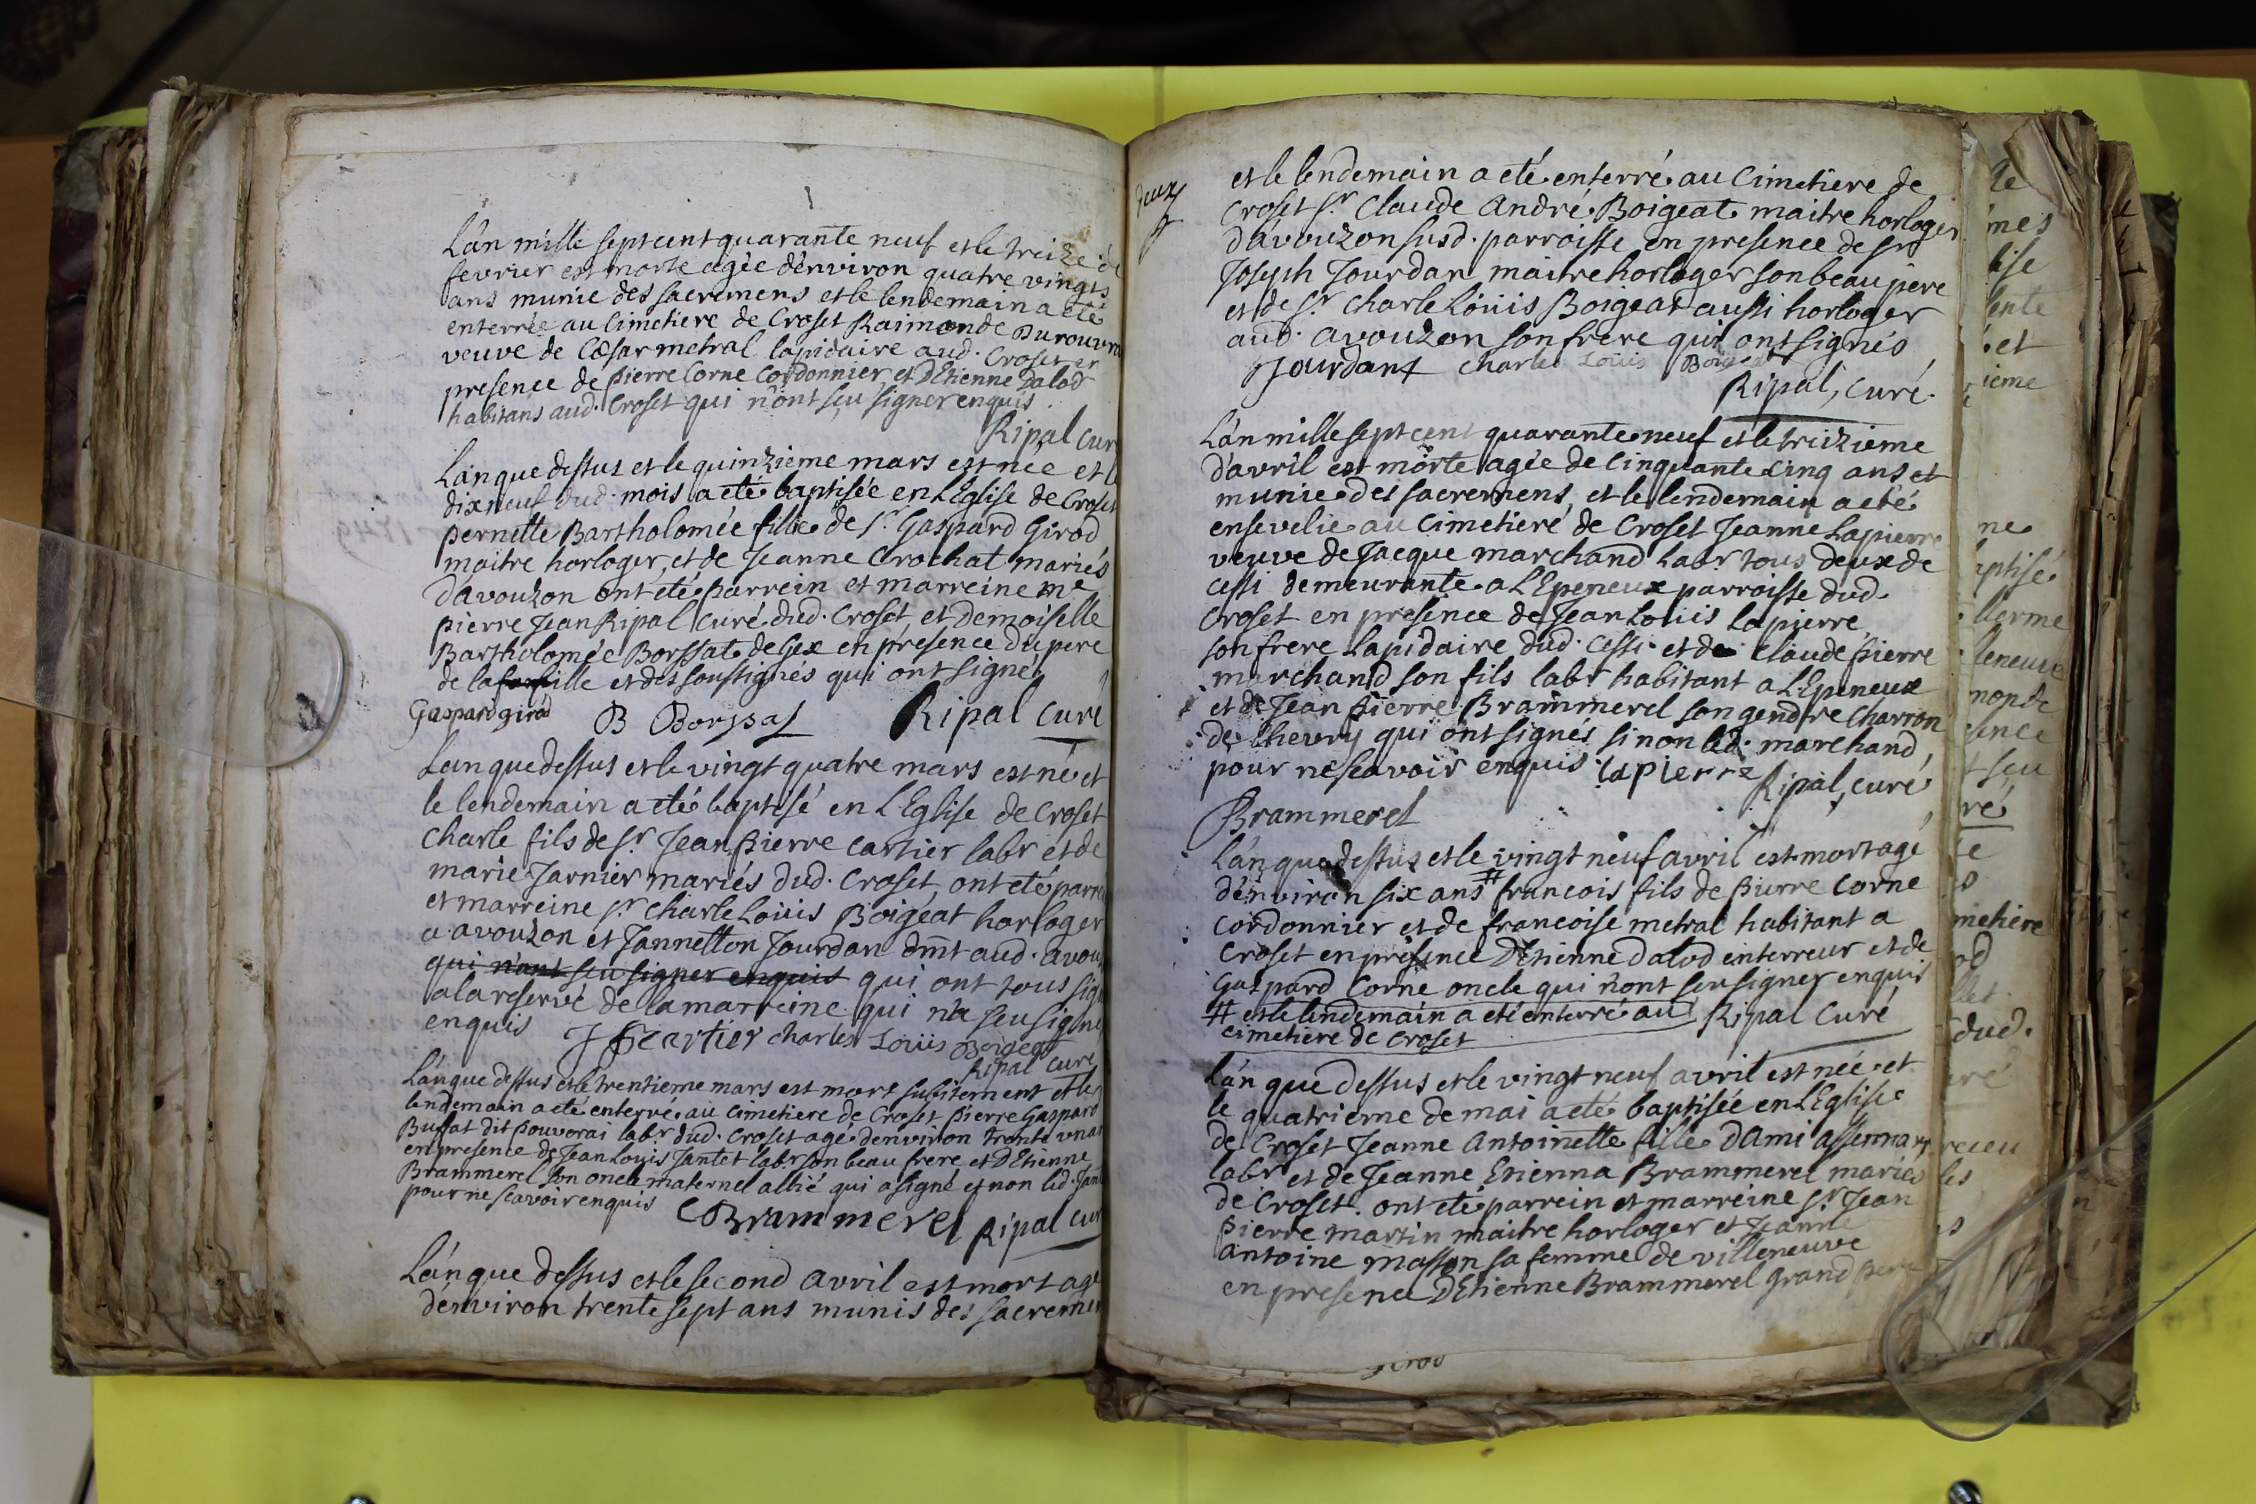 L'an mille sept cent quarante neuf et le treize de
fevrier est morte agée d'environ quatre vingts
ans munie des sacremens et le lendemain a eté
enterrée au Cimetiere de Croset Raimonde Durouvra
veuve de Cæsar metral lapidaire aud. Croset en
presence de pierre Corne Cordonnier et d'Etienne Dalod
habitans aud. Croset qui n'ont sçu signer enquis
Ripal cur
L'an que dessus et le quinzieme mars est née et le
dixneuf dud. mois a eté baptisée en l'Eglise de Croset
pernette Bartholomée fille de Sr. Gaspard Girod
maitre horloger, et de Jeanne Crochat mariés
d'avouzon ont eté parrein et marreine me
pierre Jean Ripal curé dud. Croset, et Demoiselle
Bartholomée Borssat de Gex en présence du pere
de la fille et des soussignés qui ont signé
Gaspard girod B Borssat Ripal curé
L'an que dessus et le vingt quatre mars est né et
le lendemain a eté baptisé en L'Eglise de Croset
Charle fils de Sr. Jean pierre Cartier labr et de
marie Jarnier mariés dud. Croset, ont eté parre
et marreine Sr Charle Loüis Boigeat horloger
a avouzon et Jannetton Jourdan dmt aud. avou
qui n'ont seu signer enquis qui ont tous sig
a la reserve de la marreine qui n'a seu signe
enquis JP Cartier charles Loüis Boigeat
Ripal curé
L'an que dessus et le trentieme mars est mort subitement et le
lendemain a eté enterré au cimetiere de Croset pierre Gaspard
Buffat dit pouvorai labr. dud. Croset agé d'environ trente un an
en presence de Jean Louis Jantet labr son beau frere et D'Etienne
Brammerel son oncle maternel allié qui a signé et non led. Jan
pour ne scavoir enquis
Brammerel Ripal cur
L'an que dessus et le second avril est mort agé
d'environ trente sept ans munis des sacremen
deux
et le lendemain a eté enterré au Cimetiere de
Croset Sr. Claude André Boigeat maitre horloger
d'avouzon susd. parroisse en presence de Sr
Joseph Jourdan maitre horloger son beau pere
et de Sr. Charle Loüis Boigeat aussi horloger
aud. avouzon son frere qui ont signés
Jourdant Charles Loüis Boigeat
Ripal, curé
L'an mille sept cent quarante neuf et le treizieme
d'avril est morte agée de Cinquante cinq ans et
munie des sacremens, et le lendemain a eté
ensevelie au Cimetiere de Croset Jeanne Lapierre
veuve de Jacque marchand labr tous deux de
cessi demeurante a L'Epeneux parroisse dud.
Croset en presence de Jean Loüis lapierre
son frere lapidaire dud. Cessi et de Claude pierre
marchand son fils labr habitant a L'Epeneux
et de Jean pierre Brammerel son gendre Charron
de Chevry qui ont signés sinon led. marchand
pour ne scavoir enquis lapierre
Ripal, curé
Brammerel
L'an que dessus et le vingt neuf avril est mort agé
d'environ six ans # francois fils de pierre Corne
Cordonnier et de francoise metral habitant a
Croset en présence D'Etienne Dalod enterreur et de
Gaspard Corne oncle qui n'ont seu signer enquis
# et le lendemain a eté enterré au Ripal Curé
cimetiere de Croset
L'an que dessus et le vingt neuf avril est née et
le quatrieme de mai a eté baptisée en L'Eglise
de Croset Jeanne Antoinette fille d'Ami Assennar
labr et de Jeanne Etienna Brammerel mariés
de Croset. ont eté parrein et marreine Sr. Jean
pierre martin maitre horloger et Jeanne
antoine masson sa femme de villeneuve
en presence D'Etienne Brammerel grand pere